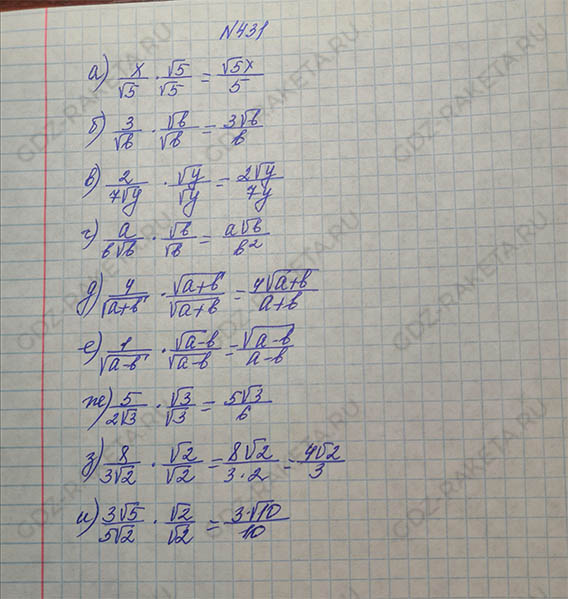 N431
а) x/√5 · √5/√5 = √5x/5
б) 3/√b · √b/√b = 3√b/b
в) 2/7√y · √y/√y = 2√y/7y
г) a/b√b · √b/√b = a√b/b²
д) 4/√a+b · √a+b/√a+b = 4√a+b/a+b
е) 1/√a-b · √a-b/√a-b = √a-b/a-b
ж) 5/2√3 · √3/√3 = 5√3/6
з) 8/3√2 · √2/√2 = 8√2/3·2 = 4√2/3
и) 3√5/5√2 · √2/√2 = 3·√10/10
GDZ-RAKETA.RU